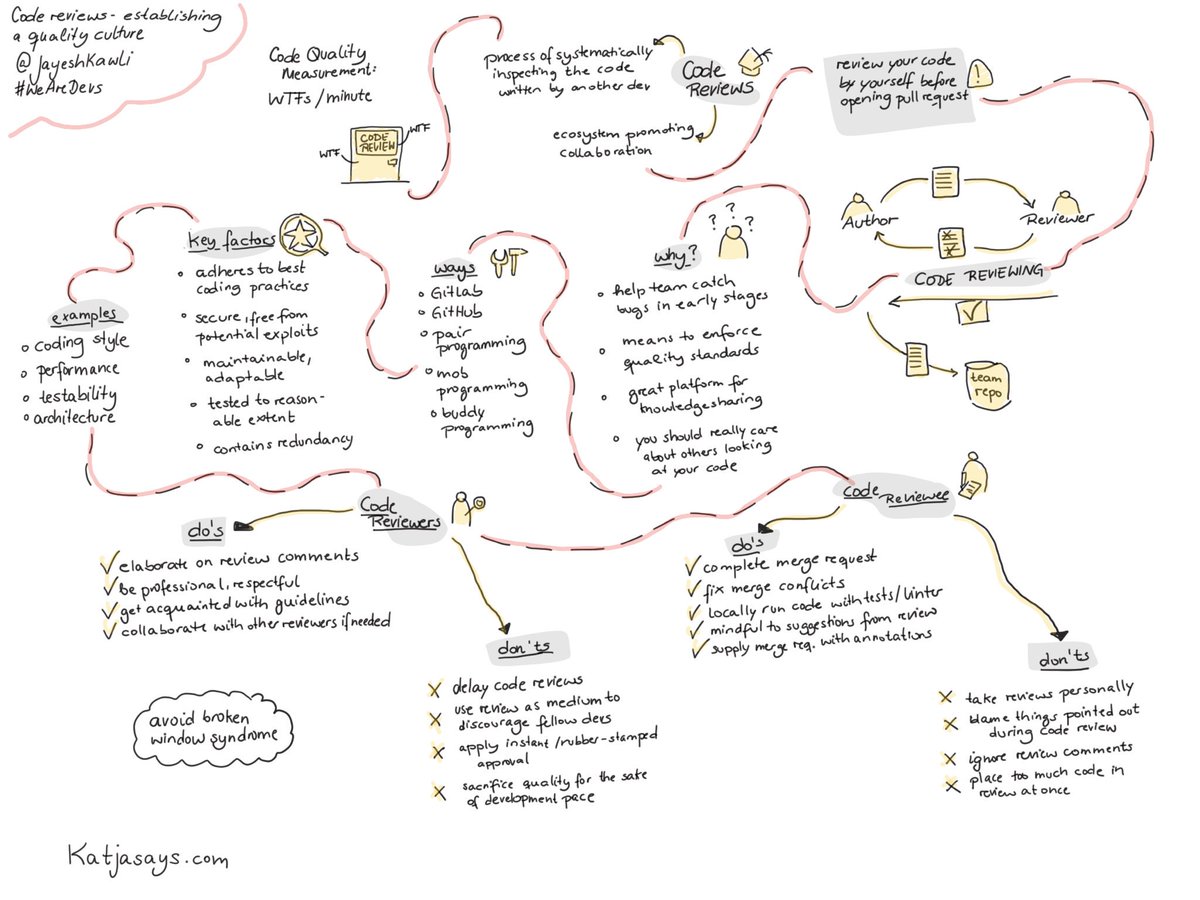 Code reviews - establishing
a quality culture
@JayeshKawli
#WeAreDevs
Code Quality
Measurement:
WTFs/minute
CODE
REVIEW
WTF
WTF
process of systematically
inspecting the code
written by another dev
Code
REVIEWS
ecosystem promoting
collaboration
review your code
by yourself before
opening pull request
!
Author
Reviewer
CODE REVIEWING
team
repo
why?
? ? ?
help team catch
bugs in early stages
means to enforce
quality standards
great platform for
knowledgesharing
you should really care
about others looking
at your code
ways
GitLab
GitHub
pair
programming
mob
programming
buddy
programming
key factors
adheres to best
coding practices
secure, free from
potential exploits
maintainable,
adaptable
tested to reason-
able extent
contains redundancy
examples
coding style
performance
testability
architecture
Code
Reviewers
do's
elaborate on review comments
be professional, respectful
get acquainted with guidelines
collaborate with other reviewers if needed
don'ts
delay code reviews
use review as medium to
discourage fellow devs
apply instant/rubber-stamped
approval
sacrifice quality for the sake
of development pace
Code
Reviewee
do's
complete merge request
fix merge conflicts
locally run code with tests/linter
mindful to suggestions from review
supply merge req. with annotations
don'ts
take reviews personally
blame things pointed out
during code review
ignore review comments
place too much code in
review at once
avoid broken
window syndrome
Katjasays.com